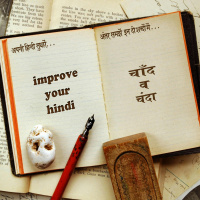 अपनी हिन्दी सुधारें...
improve
your
hindi
अंतर समझें इन शब्दों में...
चाँद
व
चंदा